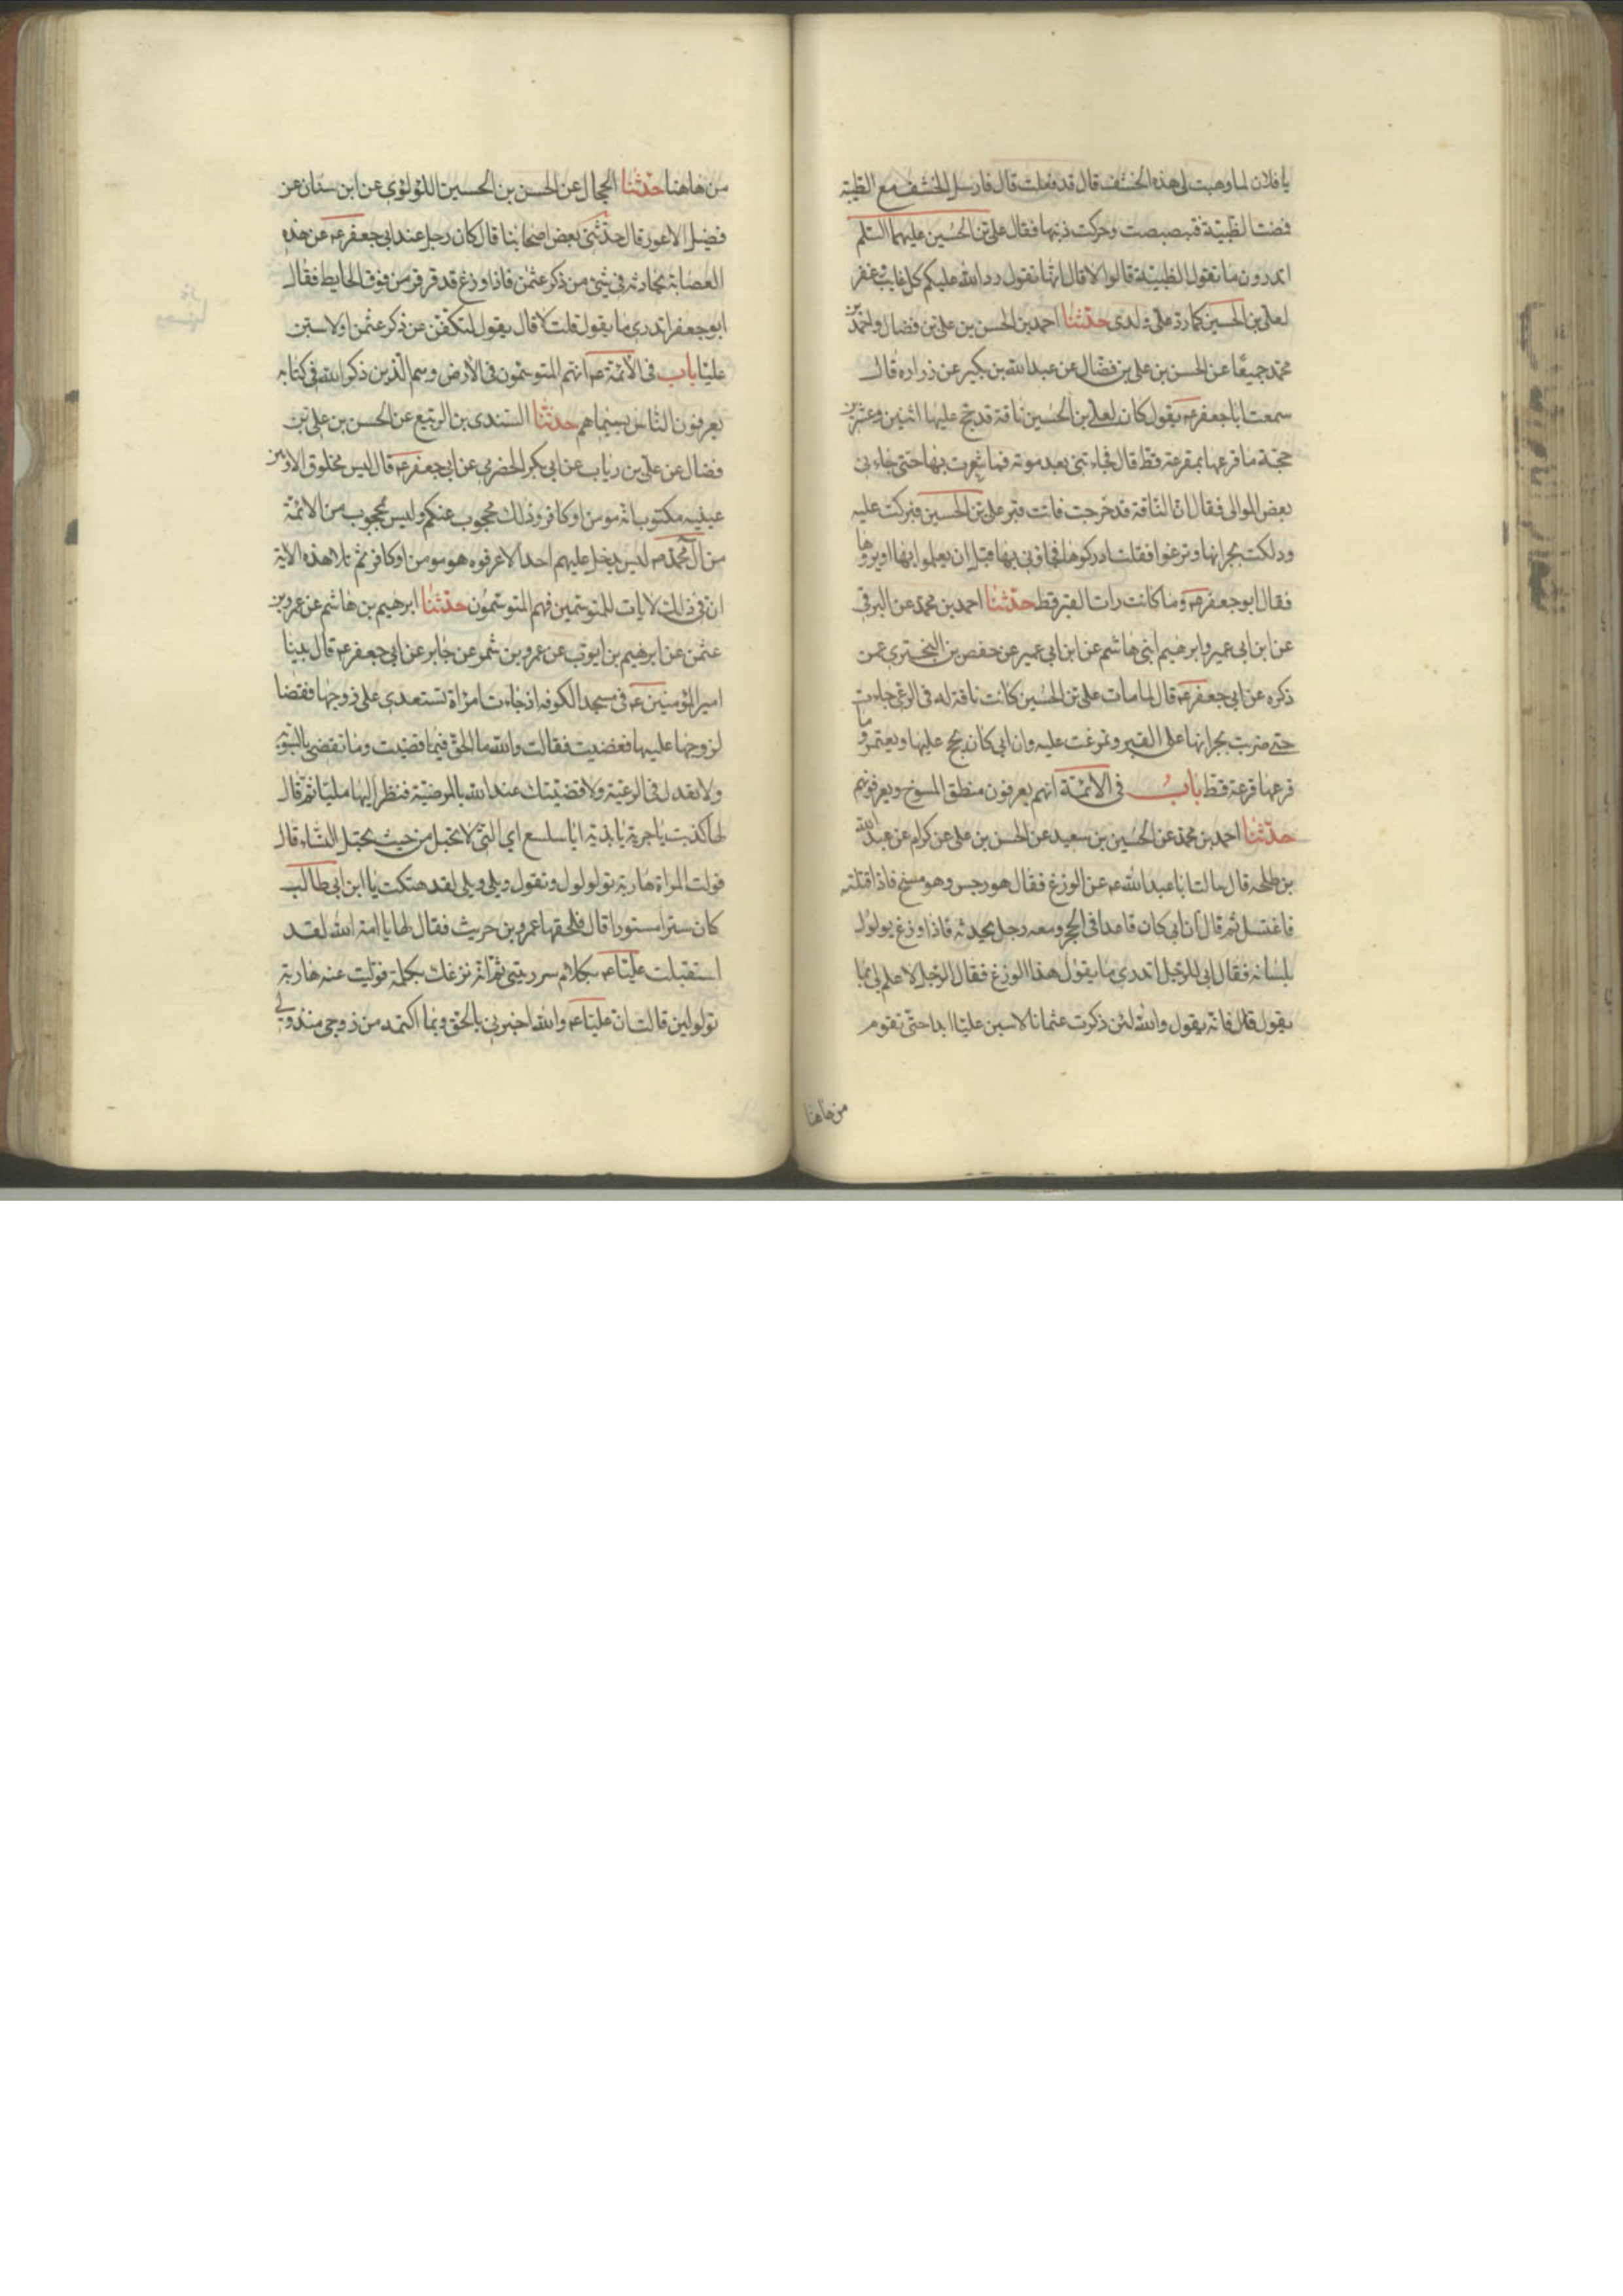 يا فلان لما وهبت لي هذه الخشف قال قد فعلت قال فارسل الخشف مع الظبية
فمضت الظبية فتبصبصت وحركت ذنبها فقال علي بن الحسين عليهما السلم
اتدرون ما تقول الظبية قالوا لا قال انها تقول رد الله عليكم كل غايب وغفر
لعلي بن الحسين كما رد علي ولدي حدثنا احمد بن الحسن بن علي بن فضال واحمد بن
محمد جميعا عن الحسن بن علي بن فضال عن عبد الله بن بكير عن زراره قال
سمعت ابا جعفر عه يقول كان لعلي بن الحسين ناقة قد حج عليها اثنين وعشرين
حجة ما قرعها بمقرعة قط قال فجاءتني بعد موته فما شعرت بها حتى جاءني
بعض الموالي فقال ان الناقة قد خرجت فاتت قبر علي بن الحسين فبركت عليه
ودلكت بجرانها وترغوا فقلت ادركوها فجاؤني بها قبل ان يعلموا بها او يروها
فقال ابو جعفر عه وما كانت رات القبر قط حدثنا احمد بن محمد عن البرقي
عن ابن ابي عمير وابرهيم ابني هاشم عن ابن ابي عمير عن حفص بن البختري عمن
ذكره عن ابي جعفر عه قال لما مات علي بن الحسين كانت ناقة له في الرعي جاءت
حتى ضربت بجرانها على القبر وتمرغت عليه وان ابي كان يحج عليها ويعتمر وما
قرعها قرعة قط باب في الائمة انهم يعرفون منطق المسوخ ويعرفونهم
حدثنا احمد بن محمد عن الحسين بن سعيد عن الحسن بن علي عن كرام عن عبد الله
بن طلحه قال سالت ابا عبد الله عه عن الوزغ فقال هو رجس وهو مسخ فاذا قتلته
فاغتسل ثم قال ان ابي كان قاعدا في الحجر ومعه رجل يحدثه فاذا وزغ يولول
بلسانه فقال ابي للرجل اتدري ما يقول هذا الوزغ فقال الرجل لا علم لي بما
يقول قال فانه يقول والله لئن ذكرت عثمانا لاسبن عليا ابدا حتى تقوم
من هاهنا
من هاهنا حدثنا الحجال عن الحسن بن الحسين اللؤلؤي عن ابن سنان عن
فضيل الاعور قال حدثني بعض اصحابنا قال كان رجل عند ابي جعفر عه من هذه
العصابة يحادثه في شئ من ذكر عثمن فاذا وزغ قد قرقر من فوق الحايط فقال
ابو جعفر اتدري ما يقول قلت لا قال يقول لتكفن عن ذكر عثمن او لاسبن
عليا باب في الائمة عه انهم المتوسمون في الارض وهم الذين ذكر الله في كتابه
يعرفون الناس بسيماهم حدثنا السندي بن الربيع عن الحسن بن علي بن
فضال عن علي بن رياب عن ابي بكر الحضرمي عن ابي جعفر عه قال ليس مخلوق الا وبين
عينيه مكتوب انه مومن او كافر وذلك محجوب عنكم وليس بمحجوب من الائمة
من ال محمد ص ليس يدخل عليهم احد الا عرفوه هو مومن او كافر ثم تلا هذه الاية
ان في ذلك لايات للمتوسمين فهم المتوسمون حدثنا ابرهيم بن هاشم عن عمرو بن
عثمن عن ابرهيم بن ايوب عن عمرو بن شمر عن جابر عن ابي جعفر عه قال بينا
امير المؤمنين عه في مسجد الكوفه اذ جاءت امراة تستعدي على زوجها فقضا
لزوجها عليها فغضبت فقالت والله ما الحق فيما قضيت وما تقضي بالسوية
ولا تعدل في الرعية ولا قضيتك عند الله بالمرضية فنظر اليها مليا ثم قال
لها كذبت يا جرية يا بذية ايا سلسع اي التي لا تحبل من حيث يحبل النساء قال
فولت المراة هاربة تولول وتقول ويلي ويلي لقد هتكت يا ابن ابي طالب
كان سترا مستورا قال فلحقها عمرو بن حريث فقال لها يا امة الله لقد
استقبلت عليا عه بكلام سررتيني ثم انه نزغك بكلمة فوليت عنه هاربة
تولولين قالت ان عليا عه والله اخبرني بالحق وبما اكتمه من زوجي منذ ولي